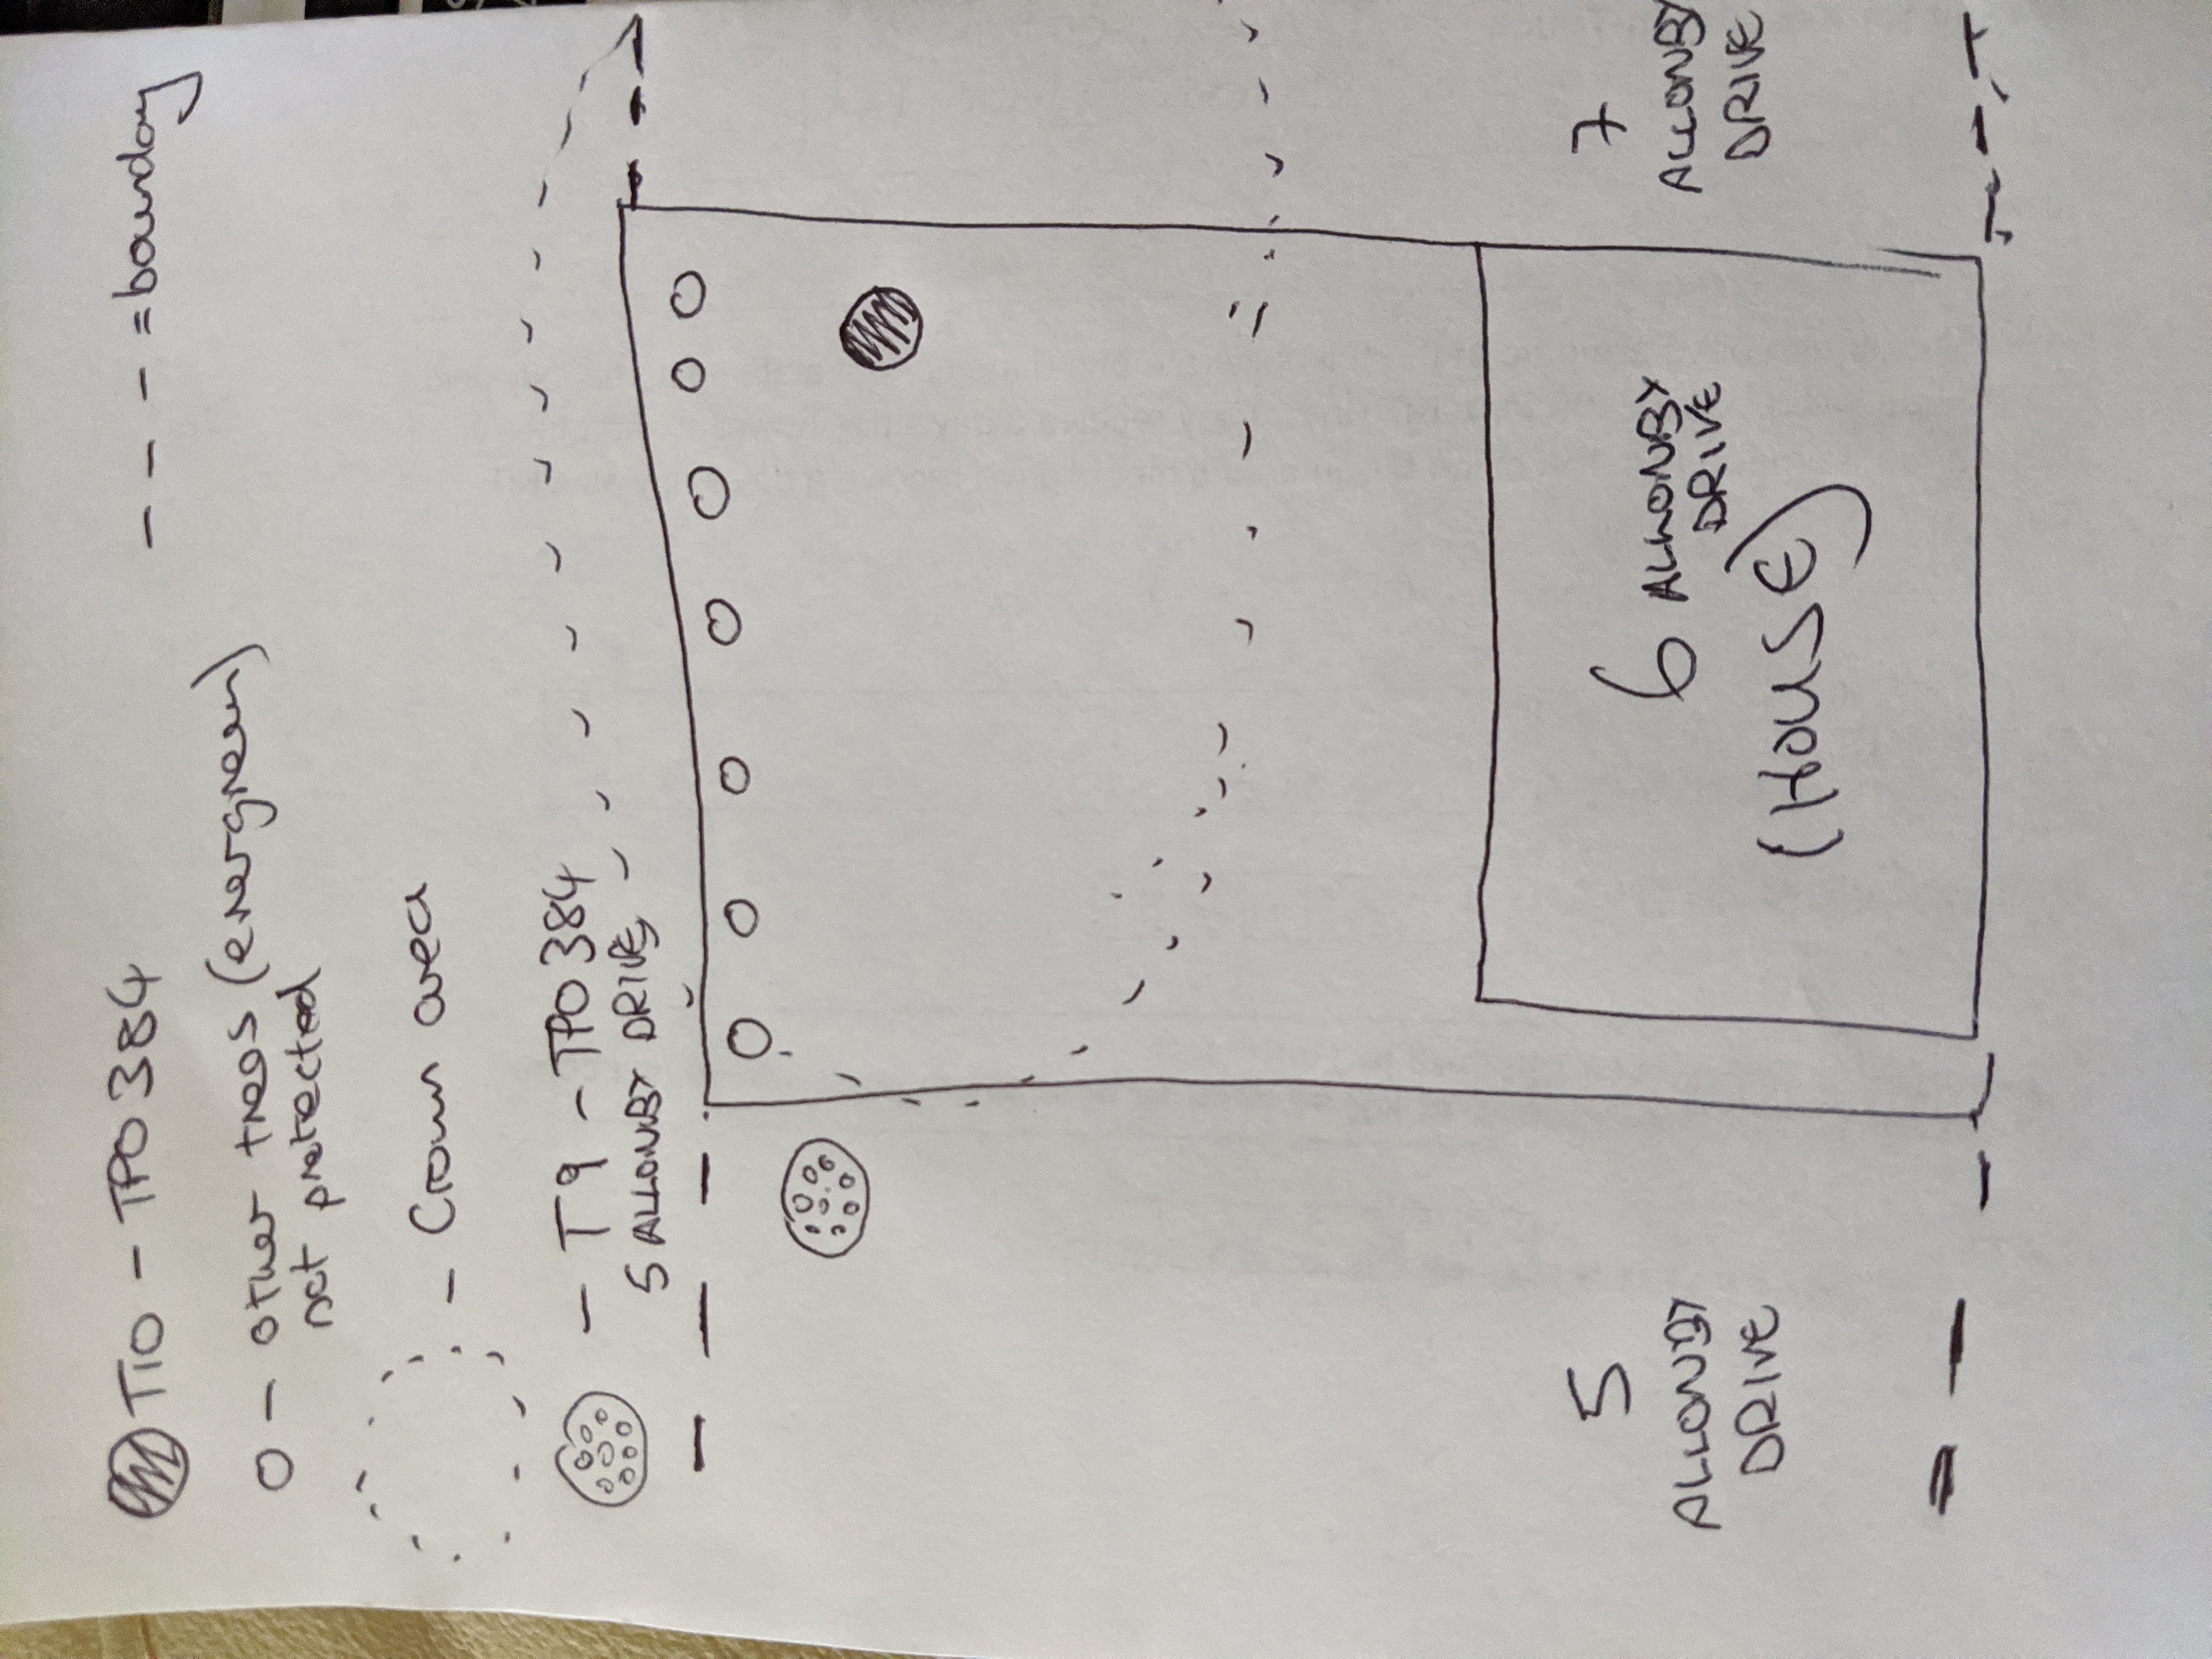 T10 - TPO384
--- = boundary
O - other trees (evergreen)
not protected
- Crown area
- T9 - TPO384
5 ALLONBY DRIVE
5
ALLONBY
DRIVE
6 ALLONBY
DRIVE
(HOUSE)
7
ALLONBY
DRIVE